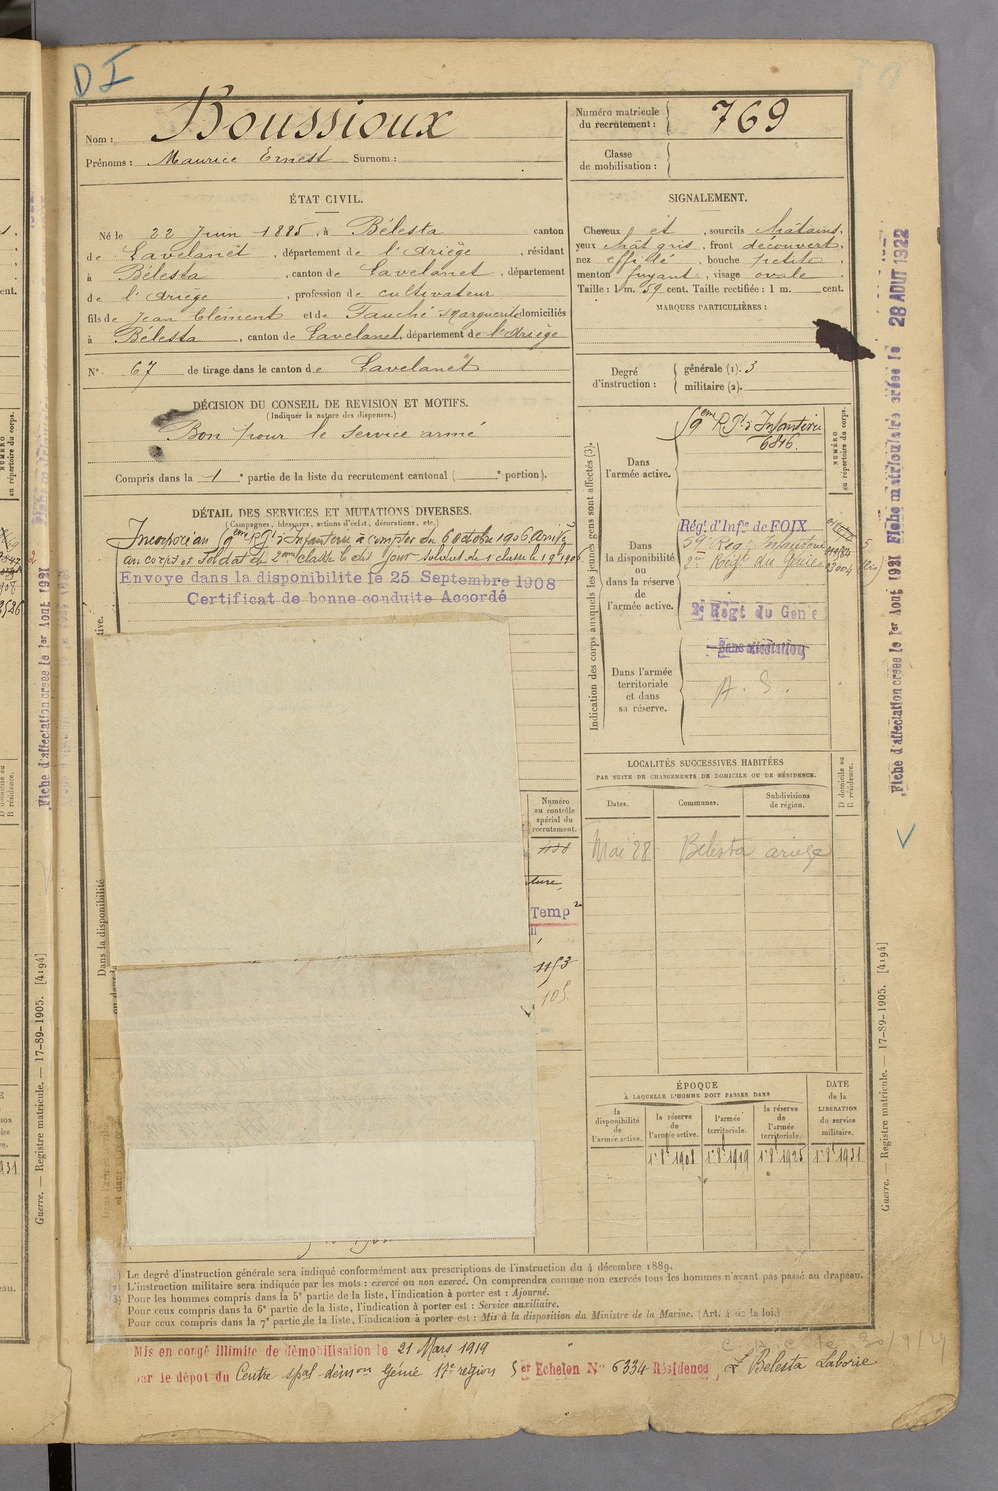 D I
Nom : Boussioux
Prénoms : Maurice Ernest Surnom :
Numéro matricule
du recrutement : 769
Classe
de mobilisation :
ÉTAT CIVIL.
Né le 22 Juin 1885, à Bélesta canton
de Lavelanet, département de l'Ariège, résidant
à Bélesta, canton de Lavelanet, département
de l'Ariège, profession de cultivateur
fils de Jean Clément et de Fauché Marguerite domiciliés
à Bélesta, canton de Lavelanet, département de l'Ariège
N° 67 de tirage dans le canton de Lavelanet
DÉCISION DU CONSEIL DE REVISION ET MOTIFS.
(Indiquer la nature des dispenses.)
Bon pour le service armé
Compris dans la 1 e partie de la liste du recrutement cantonal ( e portion).
DÉTAIL DES SERVICES ET MUTATIONS DIVERSES.
(Campagnes, blessures, actions d'éclat, décorations, etc.)
Incorporé au 59eme Rgt d'Infanterie à compter du 6 octobre 1906 Arrivé
au corps et Soldat de 2eme classe le dit jour Soldat de 1 classe le
Envoye dans la disponibilite le 25 Septembre 1908
Certificat de bonne conduite Accordé
SIGNALEMENT.
Cheveux et, sourcils châtains,
yeux chât gris, front découvert,
nez effilé, bouche petite,
menton fuyant, visage ovale.
Taille : 1 m. 59 cent. Taille rectifiée : 1 m. cent.
MARQUES PARTICULIÈRES :
Degré
d'instruction :
générale (1). 3
militaire (2).
Indication des corps auxquels les jeunes gens sont affectés (3).
NUMÉRO
au répertoire du corps.
Dans
l'armée active.
59em Rgt d'Infanterie
6816.
Dans
la disponibilité
ou
dans la réserve
de
l'armée active.
Régt. d'Infie de FOIX
59e Reg. Infanterie
2em Régt du Génie
2e Régt du Genie
Sans affectation
Dans l'armée
territoriale
et dans
sa réserve.
A. S.
LOCALITÉS SUCCESSIVES HABITÉES
PAR SUITE DE CHANGEMENTS DE DOMICILE OU DE RÉSIDENCE.
Dates.
Communes.
Subdivisions
de région.
D domicile ou
R résidence.
Mai 28 Belesta ariège
Numéro
au contrôle
spécial du
recrutement.
ture,
Temp
1153
105
Dans la disponibilité
ÉPOQUE
À LAQUELLE L'HOMME DOIT PASSER DANS
la
disponibilité
de
l'armée active.
la réserve
de
l'armée active.
l'armée
territoriale.
la réserve
de
l'armée
territoriale.
DATE
de la
LIBÉRATION
du service
militaire.
1er 8 1908 1er 8 1919 1er 8 1925 1er 8 1931
(1) Le degré d'instruction générale sera indiqué conformément aux prescriptions de l'instruction du 4 décembre 1889.
(2) L'instruction militaire sera indiquée par les mots : exercé ou non exercé. On comprendra comme non exercés tous les hommes n'ayant pas passé au drapeau.
(3) Pour les hommes compris dans la 5e partie de la liste, l'indication à porter est : Ajourné.
Pour ceux compris dans la 6e partie de la liste, l'indication à porter est : Service auxiliaire.
Pour ceux compris dans la 7e partie de la liste, l'indication à porter est : Mis à la disposition du Ministre de la Marine. (Art. 4 de la loi.)
Mis en congé illimité de démobilisation le 21 Mars 1919
par le dépot du Centre spal démon Génie 17e région 5 er Echelon N° 6334 Résidence, L Belesta Laborie
Fiche d'affectation créée le 1er Aout 1921 Fiche matriculaire créée le 28 AOUT 1922
Guerre. — Registre matricule. — 17-89-1905. [4194]
Fiche d'affectation créée le 1er Aout 1921
Guerre. — Registre matricule. — 17-89-1905. [4194]